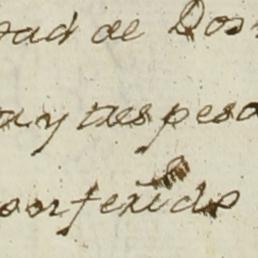 dad de Dos
a y tres pesos
conferido